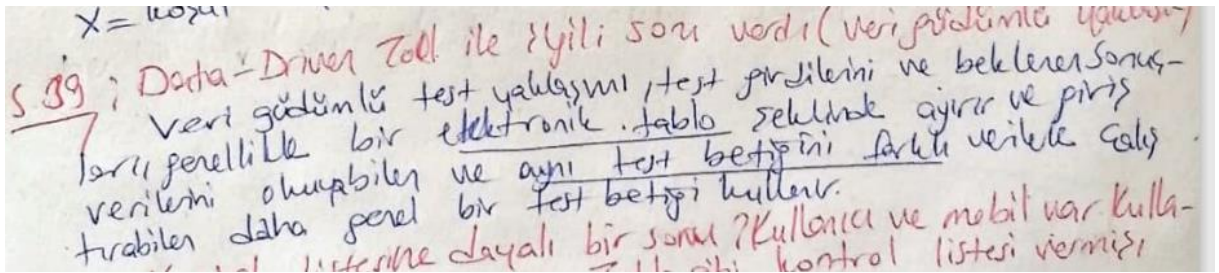 X= koşul
S 39; Data-Driven Tool ile ilgili soru vardı (veri güdümlü yaklaşım)
Veri güdümlü test yaklaşımı, test girdilerini ve beklenen sonuç-
ları genellikle bir elektronik tablo şeklinde ayırır ve giriş
verilerini okuyabilen ve aynı test betiğini farklı verilerle çalış
tırabilen daha genel bir test betiği kullanır.
listesine dayalı bir soru ? Kullanıcı ve mobil var Kulla-
kontrol listesi vermiş,